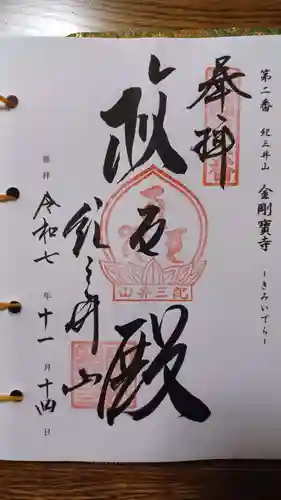 第二番 紀三井山 金剛寳寺
ーきみいでらー
奉拝
救世殿
紀三井山
紀三井山
参拝 令和七年十一月十四日